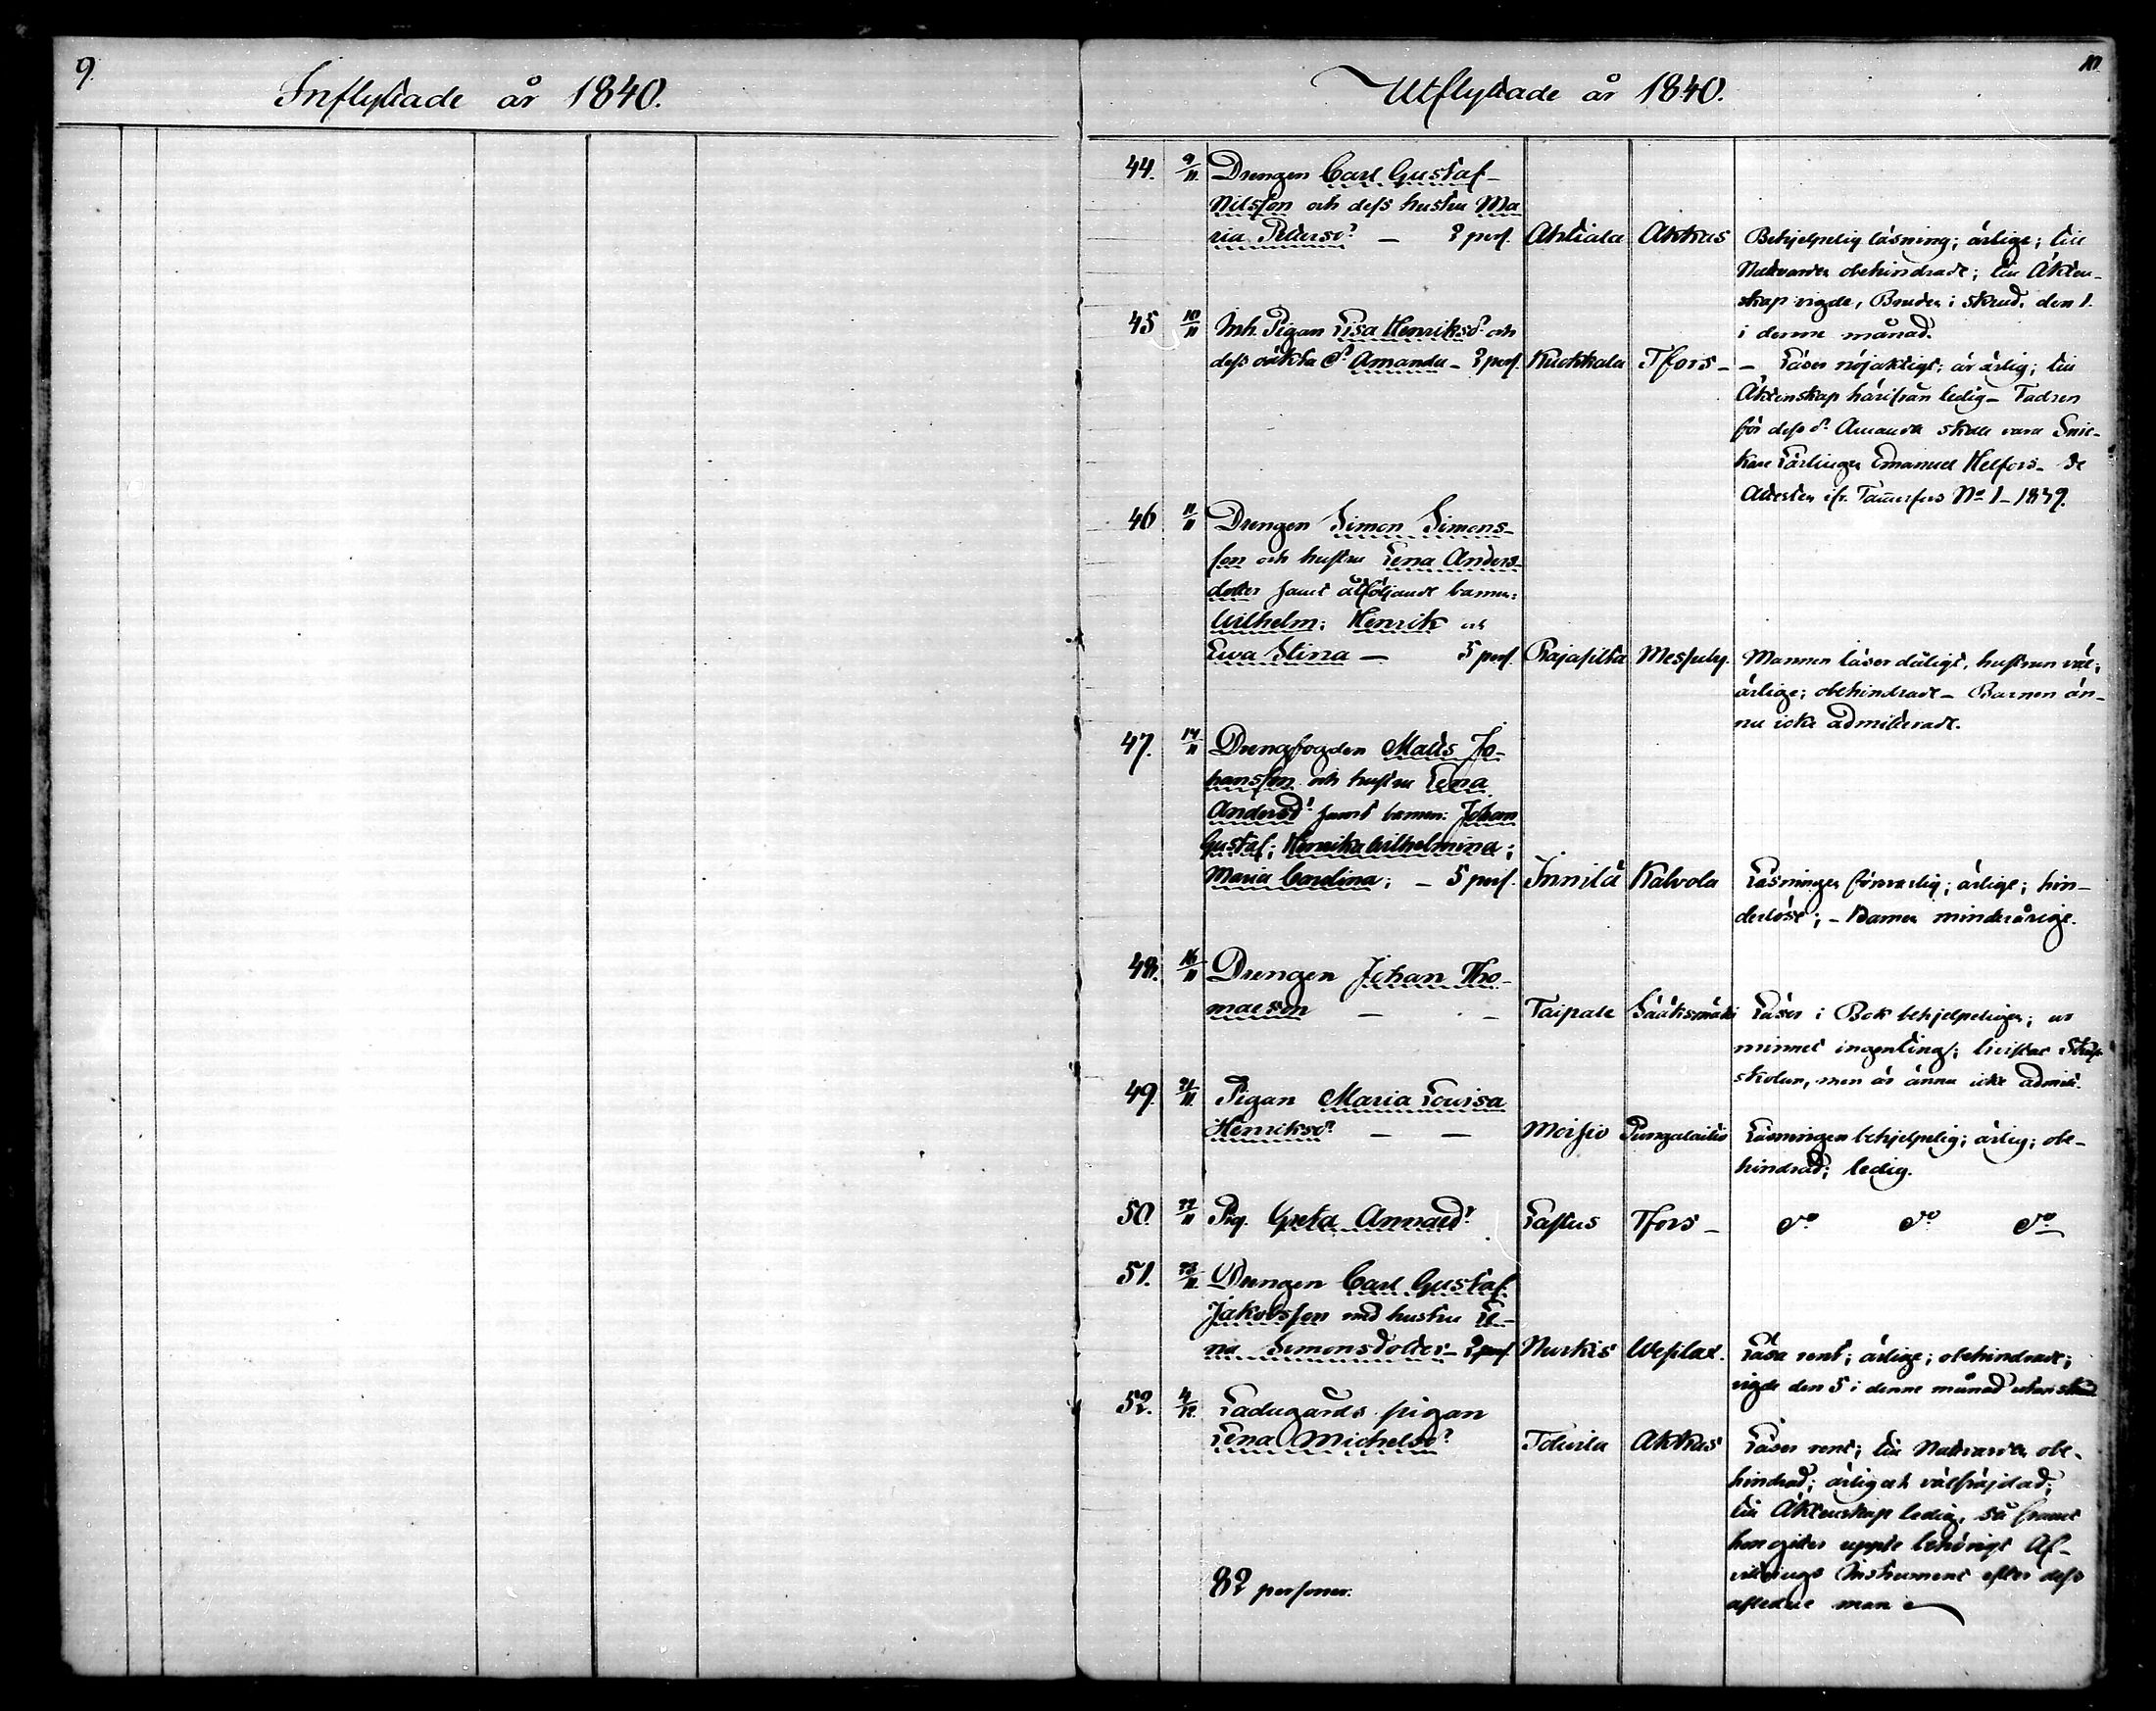 9.
Inflyttade år 1840.
10.
Utflyttade år 1840.
44. 9/11. Drengen Carl Gustaf
Nilsson och dess hustru Ma
ria Petersd:r — 2 pers. Ahtiala Akkas Behjelpelig läsning; ärlige; till
Nattvarden obehindrade; till Äkten-
skap vigde, Bruden i skrud, den 1.
i denne månad.
45 10/11 Inh. Pigan Lisa Henriksd:r och
dess oäkta d:r Amanda — 2 pers. Kuokkala Tfors — — Läser nöjaktigt; är ärlig; till
Äktenskap härifrån ledig — Fadren
för dess d:r Amanda skall vara Snic-
kare Lärlingen Emanuel Helfors — Se
Attesten ifr. Tammerfors No 1 — 1839.
46 11/11 Drengen Simon Simons-
son och hustru Lena Anders-
dotter samt åtföljande barnen:
Wilhelm; Henrik och
Ewa Stina — 5 pers. Rajasilta Messuby. Mannen läser dåligt, hustrun väl;
ärlige; obehindrade — Barnen än-
nu icke admitterade.
47. 14/11 Drengfogden Matts Jo-
hansson och hustru Lena
Andersd:r samt barnen: Johan
Gustaf; Henrika Wilhelmina;
Maria Carolina; — 5 pers. Innilä Kalvola Läsningen försvarlig; ärlige; hin-
derlöse; — Barnen minderårige.
48. 16/11 Drengen Johan Tho-
masson — — Taipale Sääksmäki Läser i Bok behjelpeligen; ur
minnet ingenting;
skolan, men är ännu icke admitt.
49. 21/11 Pigan Maria Lovisa
Henriksd:r — — Moisio Pungalaitio Läsningen behjelpelig; ärlig; obe-
hindrad; ledig.
50. 22/11 Pig. Greta Annaed:r Lastus Tfors — d:o d:o d:o
51. 23/11 Drengen Carl Gustaf
Jakobsson med hustru Le-
na Simonsdotter — 2 pers. Nurkis Wesilax. Läsa rent; ärlige; obehindrade;
vigde den 5 i denne månad utan skrud
52. 4/12. Ladugårds pigan
Lena Michelsd:r Toluila Akkas Läser rent; till Nattvarden obe-
hindrad; ärlig och välfräjdad;
till Äktenskap ledig, så framt
hon gitter uppte behörigt Af-
vittrings Instrument efter dess
aflidne man
82 personer.